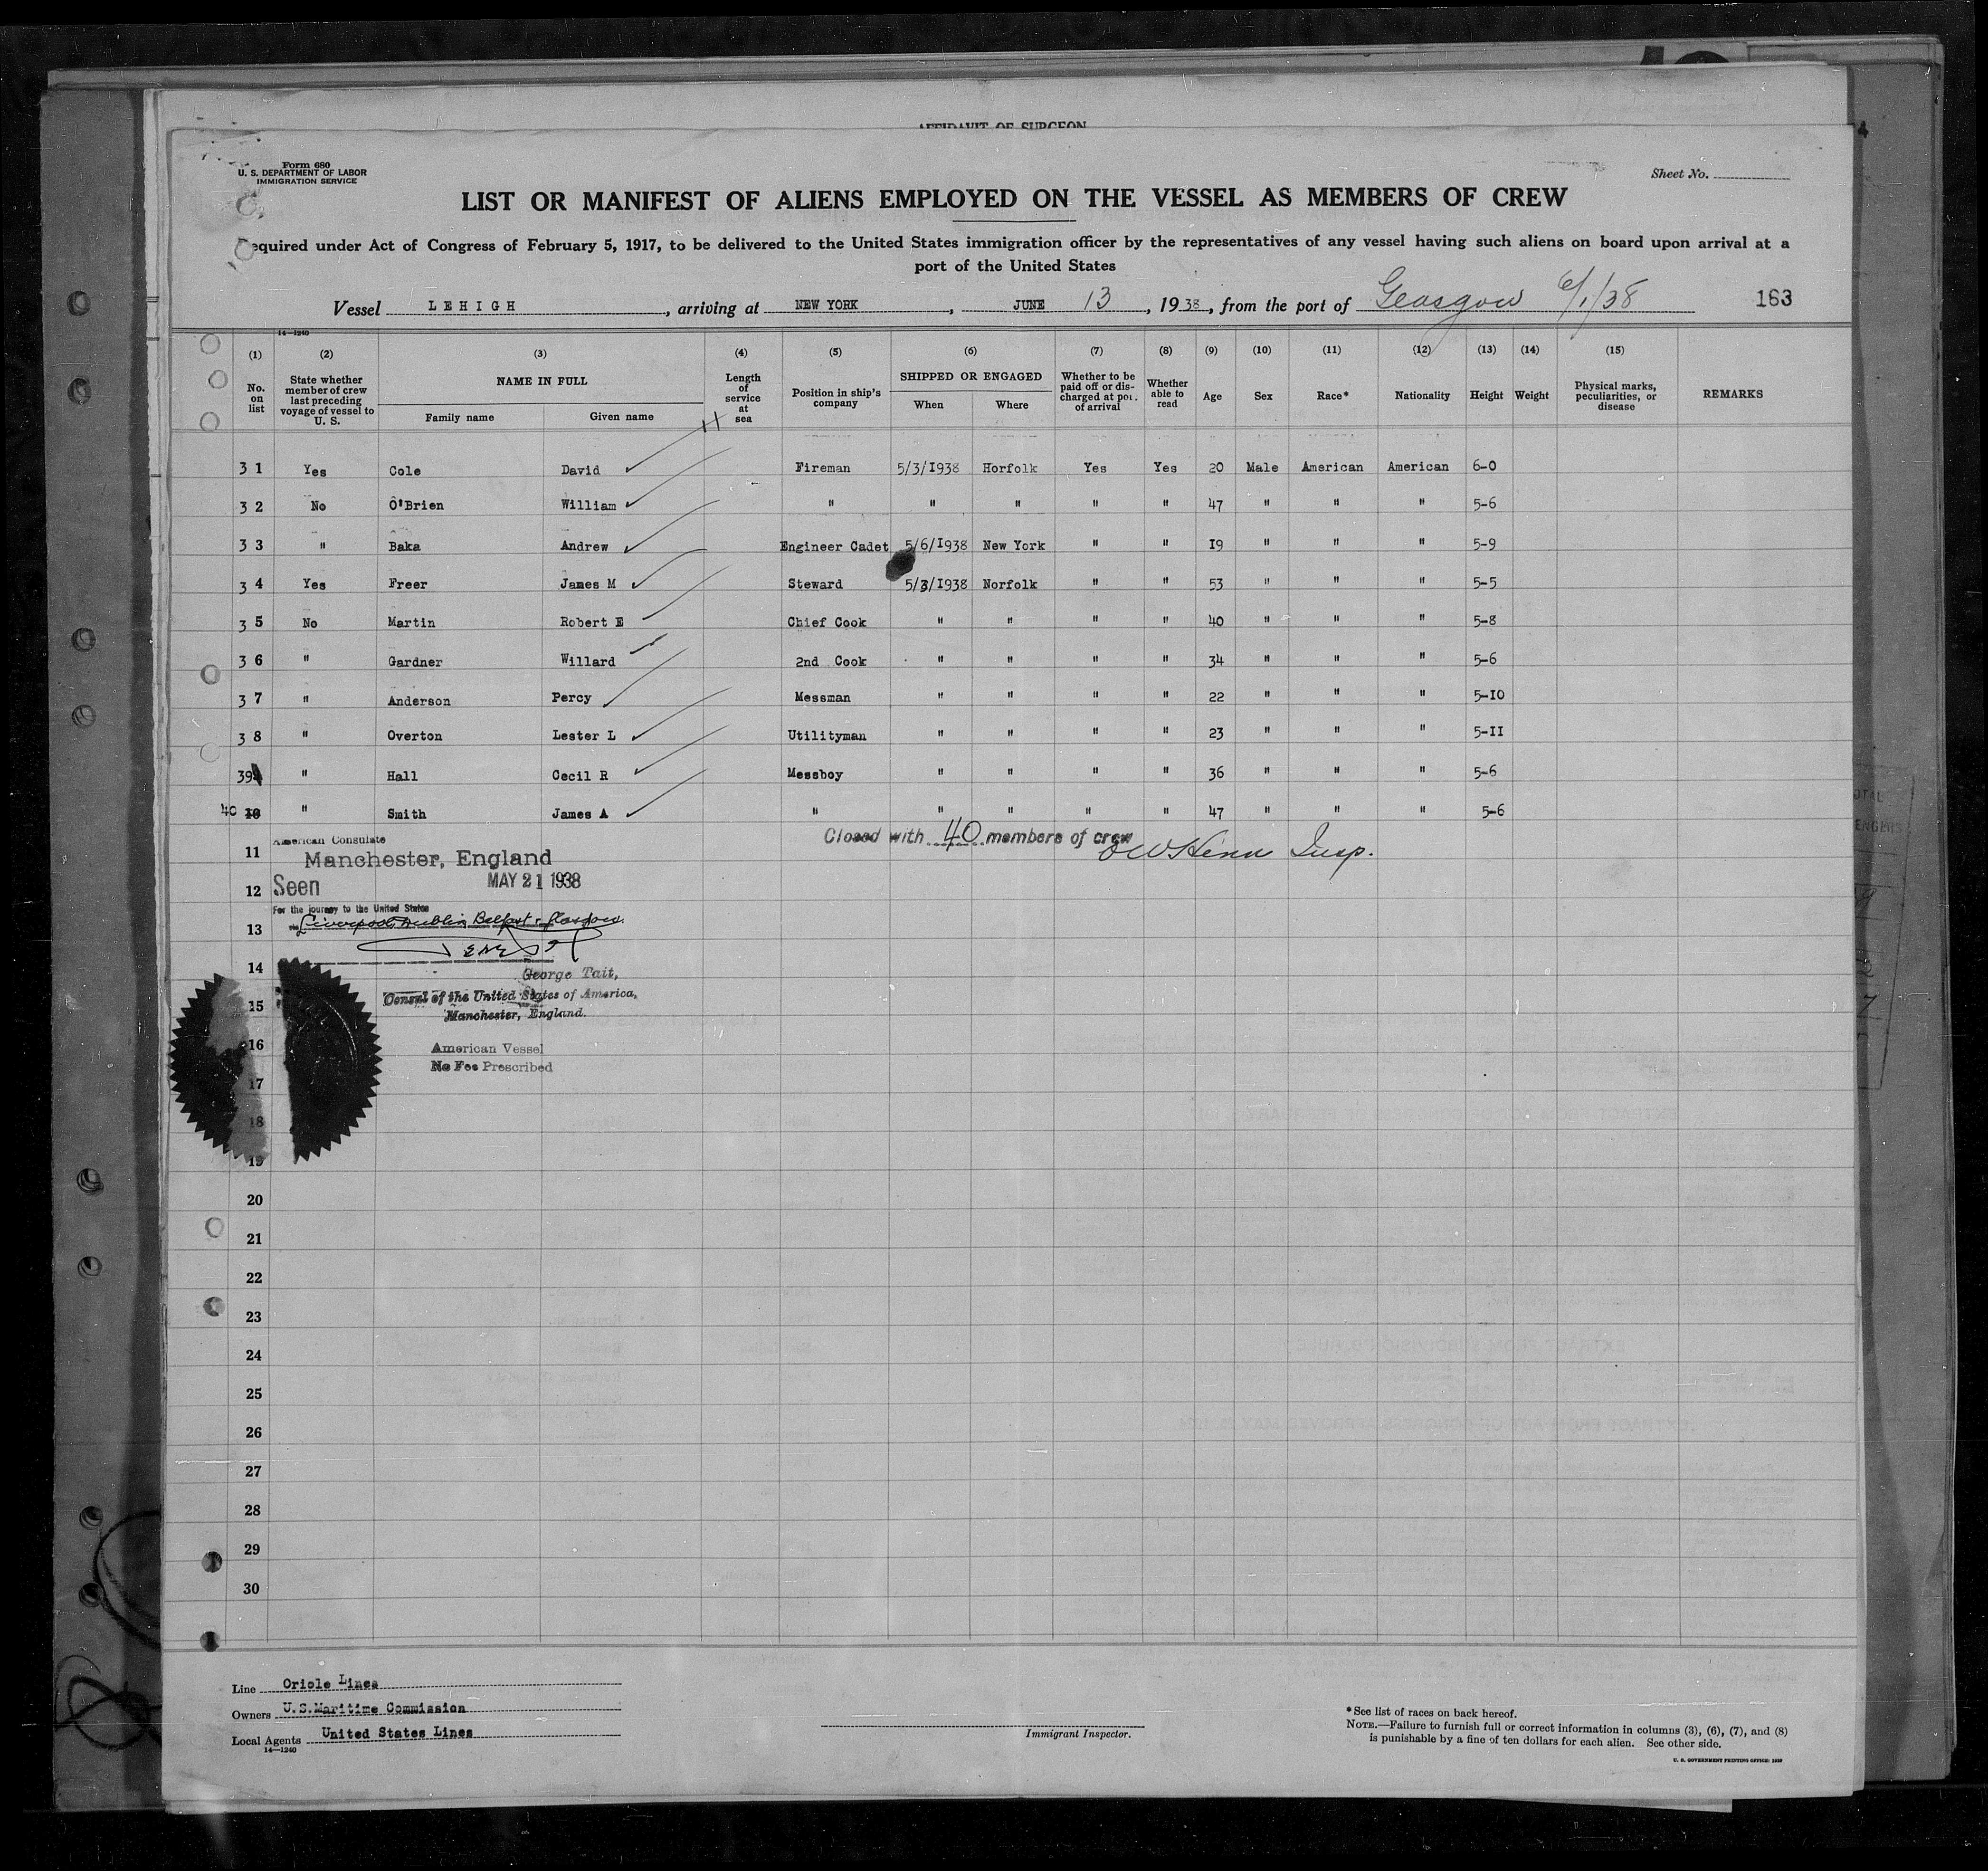 AFFIDAVIT OF SURGEON
Form 680
U. S. DEPARTMENT OF LABOR
IMMIGRATION SERVICE
Sheet No.
LIST OR MANIFEST OF ALIENS EMPLOYED ON THE VESSEL AS MEMBERS OF CREW
Required under Act of Congress of February 5, 1917, to be delivered to the United States immigration officer by the representatives of any vessel having such aliens on board upon arrival at a
port of the United States
Vessel LEHIGH, arriving at NEW YORK, JUNE 13, 1938, from the port of Glasgow 6/1/38 163
14—1240
(1) (2) (3) (4) (5) (6) (7) (8) (9) (10) (11) (12) (13) (14) (15)
No. on list State whether member of crew last preceding voyage of vessel to U. S. NAME IN FULL Family name Given name Length of service at sea Position in ship's company SHIPPED OR ENGAGED When Where Whether to be paid off or discharged at port of arrival Whether able to read Age Sex Race* Nationality Height Weight Physical marks, peculiarities, or disease REMARKS
3 1 Yes Cole David Fireman 5/3/1938 Horfolk Yes Yes 20 Male American American 6-0
3 2 No O'Brien William " " " " " 47 " " " 5-6
3 3 " Baka Andrew Engineer Cadet 5/6/1938 New York " " 19 " " " 5-9
3 4 Yes Freer James M Steward 5/3/1938 Norfolk " " 53 " " " 5-5
3 5 No Martin Robert E Chief Cook " " " " 40 " " " 5-8
3 6 " Gardner Willard 2nd Cook " " " " 34 " " " 5-6
3 7 " Anderson Percy Messman " " " " 22 " " " 5-10
3 8 " Overton Lester L Utilityman " " " " 23 " " " 5-11
39 " Hall Cecil R Messboy " " " " 36 " " " 5-6
40 10 " Smith James A " " " " " 47 " " " 5-6
Closed with 40 members of crew Insp.
American Consulate
11 Manchester, England
12 Seen MAY 21 1938
For the journey to the United States
13 via Liverpool, Dublin, Belfast & Glasgow.
14 George Tait,
15 Consul of the United States of America,
Manchester, England.
16 American Vessel
No Fee Prescribed
17
18
19
20
21
22
23
24
25
26
27
28
29
30
Line Oriole Lines
Owners U.S.Maritime Commission
Local Agents United States Lines
14—1240
Immigrant Inspector.
*See list of races on back hereof.
NOTE.—Failure to furnish full or correct information in columns (3), (6), (7), and (8)
is punishable by a fine of ten dollars for each alien. See other side.